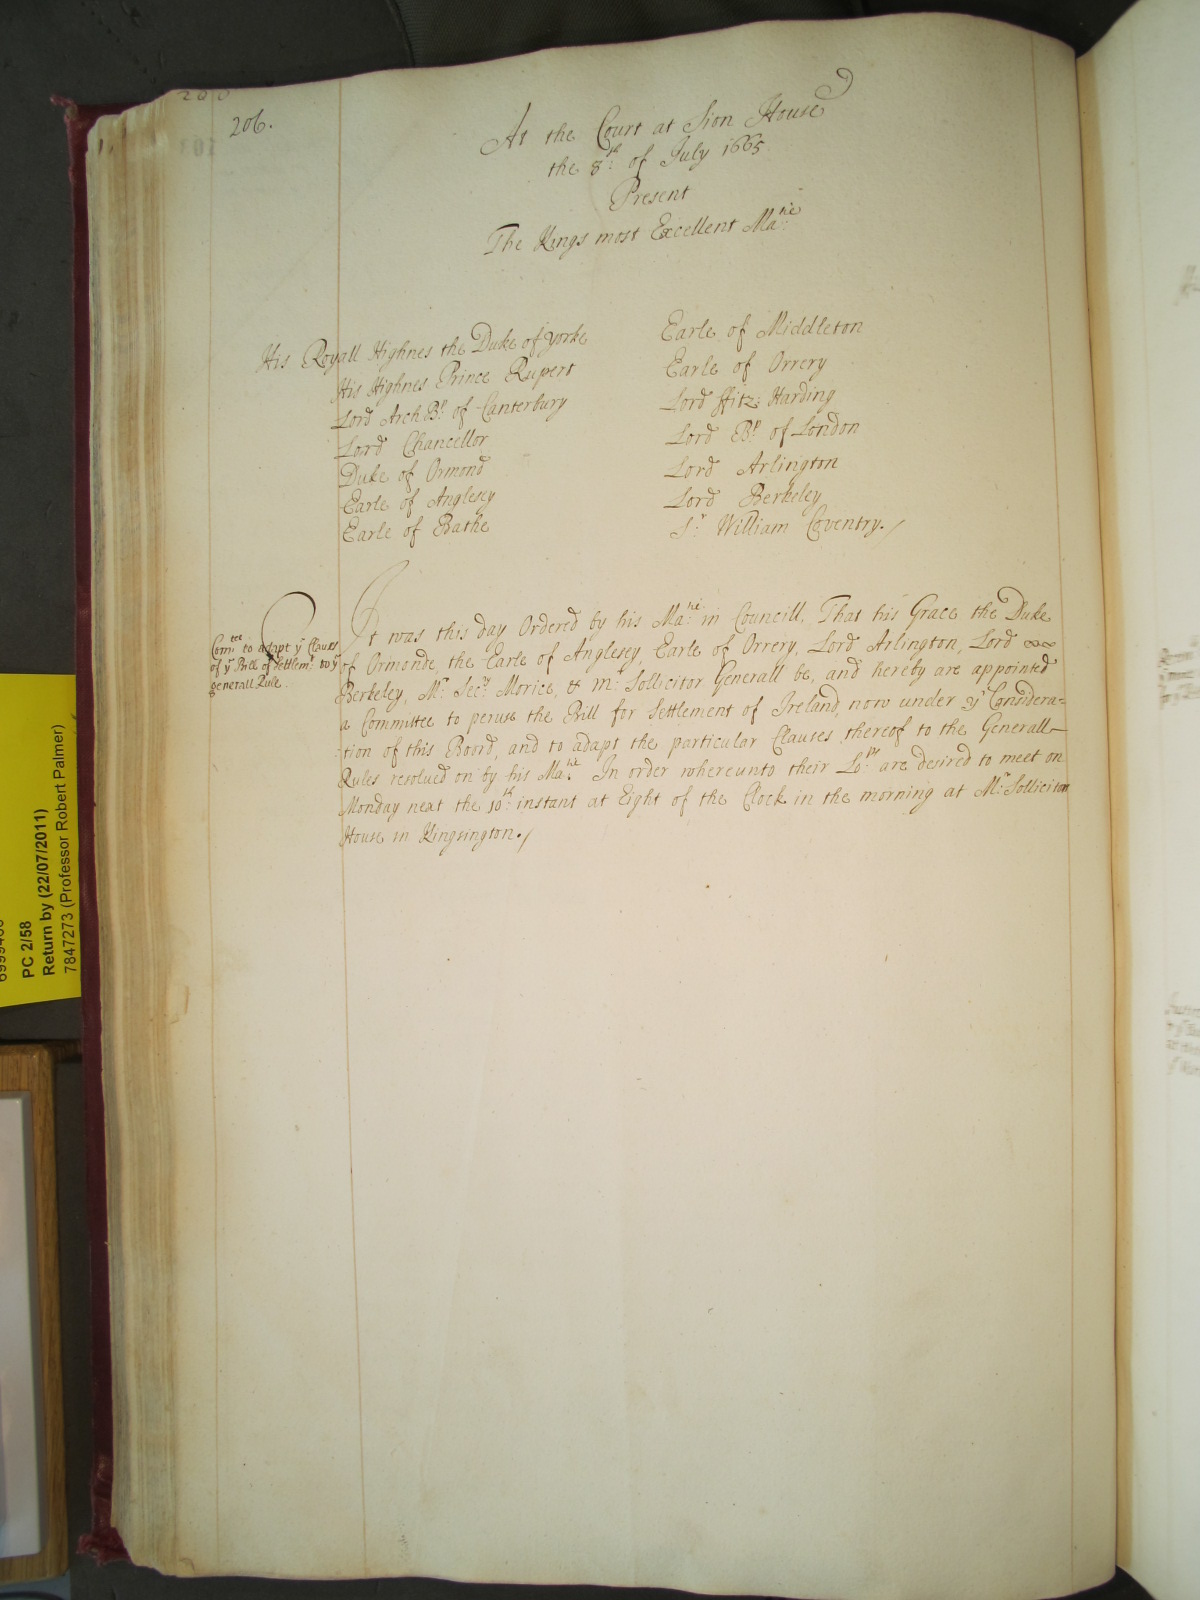 206.
At the Court at Sion House
the 8th: of July 1665
Present
The Kings most Excellent Ma:tie
His Royall Highnes the Duke of yorke
His Highnes Prince Rupert
Lord ArchBp: of Canterbury
Lord Chancellor
Duke of Ormond
Earle of Anglesey
Earle of Bathe
Earle of Middleton
Earle of Orrery
Lord ffitz: Harding
Lord Bp: of London
Lord Arlington
Lord Berkeley
Sr: William Coventry./
Com:tee to adapt ye Clauses
of ye Bill of Settlemt: to ye
generall Rule.
It was this day Ordered by his Ma:tie in Councill, That his Grace the Duke
of Ormonde, the Earle of Anglesey, Earle of Orrery, Lord Arlington, Lord
Berkeley, Mr: Secry: Morice, & Mr: Sollicitor Generall be, and hereby are appointed
a Committee to peruse the Bill for Settlement of Ireland, now under ye Considera=
:tion of this Boord, and to adapt the particular Clauses thereof to the Generall
Rules resolued on by his Ma:tie In order whereunto their Lo:pps are desired to meet on
Monday next the 10th: instant at Eight of the Clock in the morning at Mr: Sollicitors
House in Kingsington./
PC 2/58
Return by (22/07/2011)
7847273 (Professor Robert Palmer)